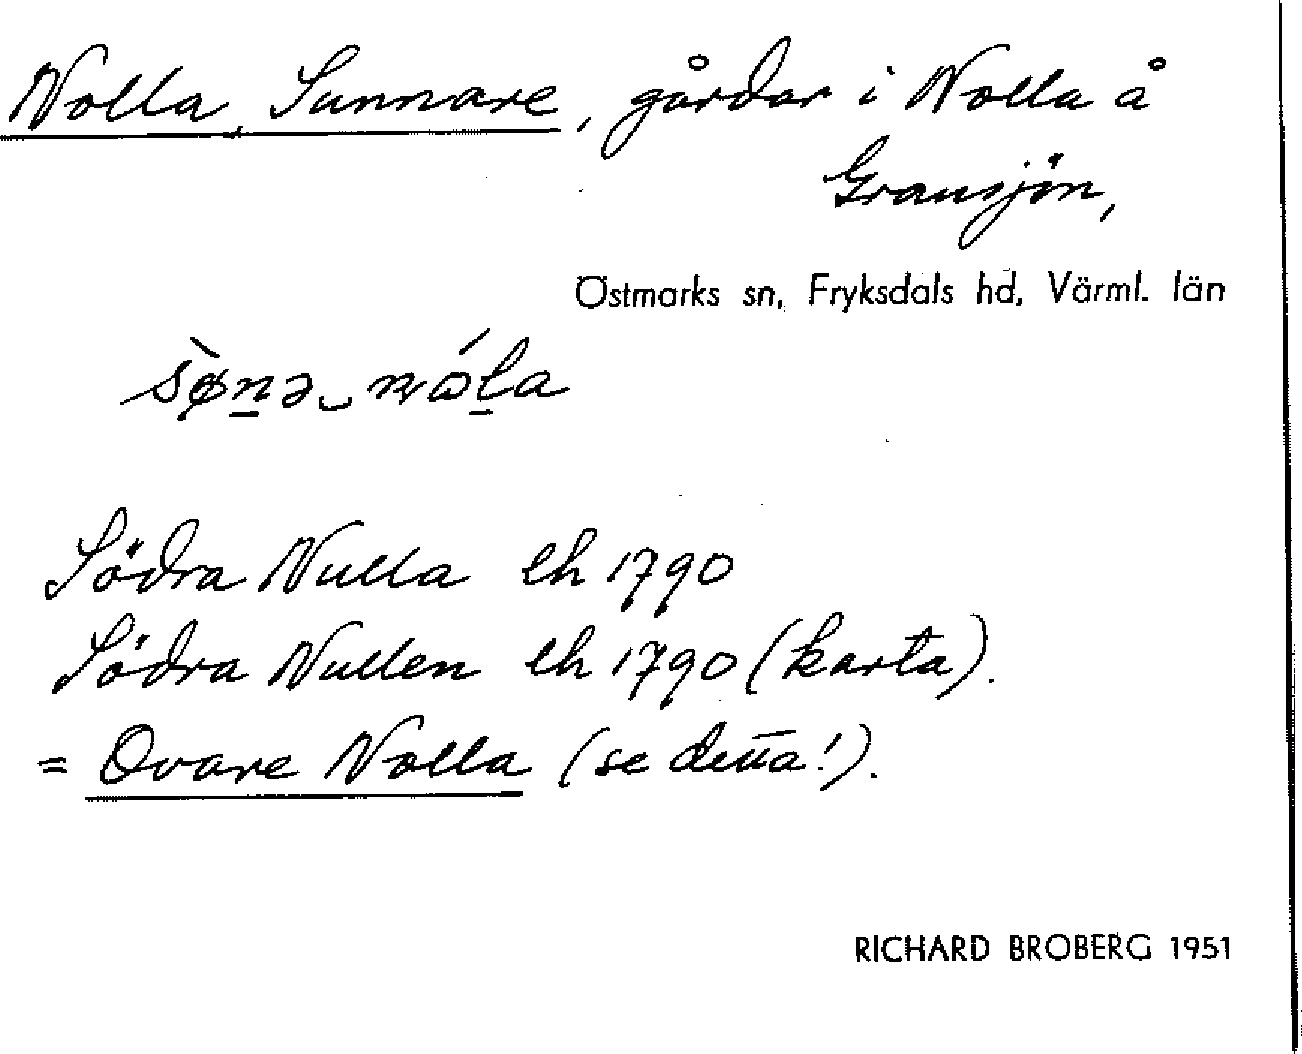 Nolla, Sunnare, gårdar i Nolla å
Gransjön,
Östmarks sn, Fryksdals hd, Värml. län
Södra Nulla eh 1790
Södra Nullen eh 1790 (karta).
= Ovare Nolla (se detta!).
RICHARD BROBERG 1951